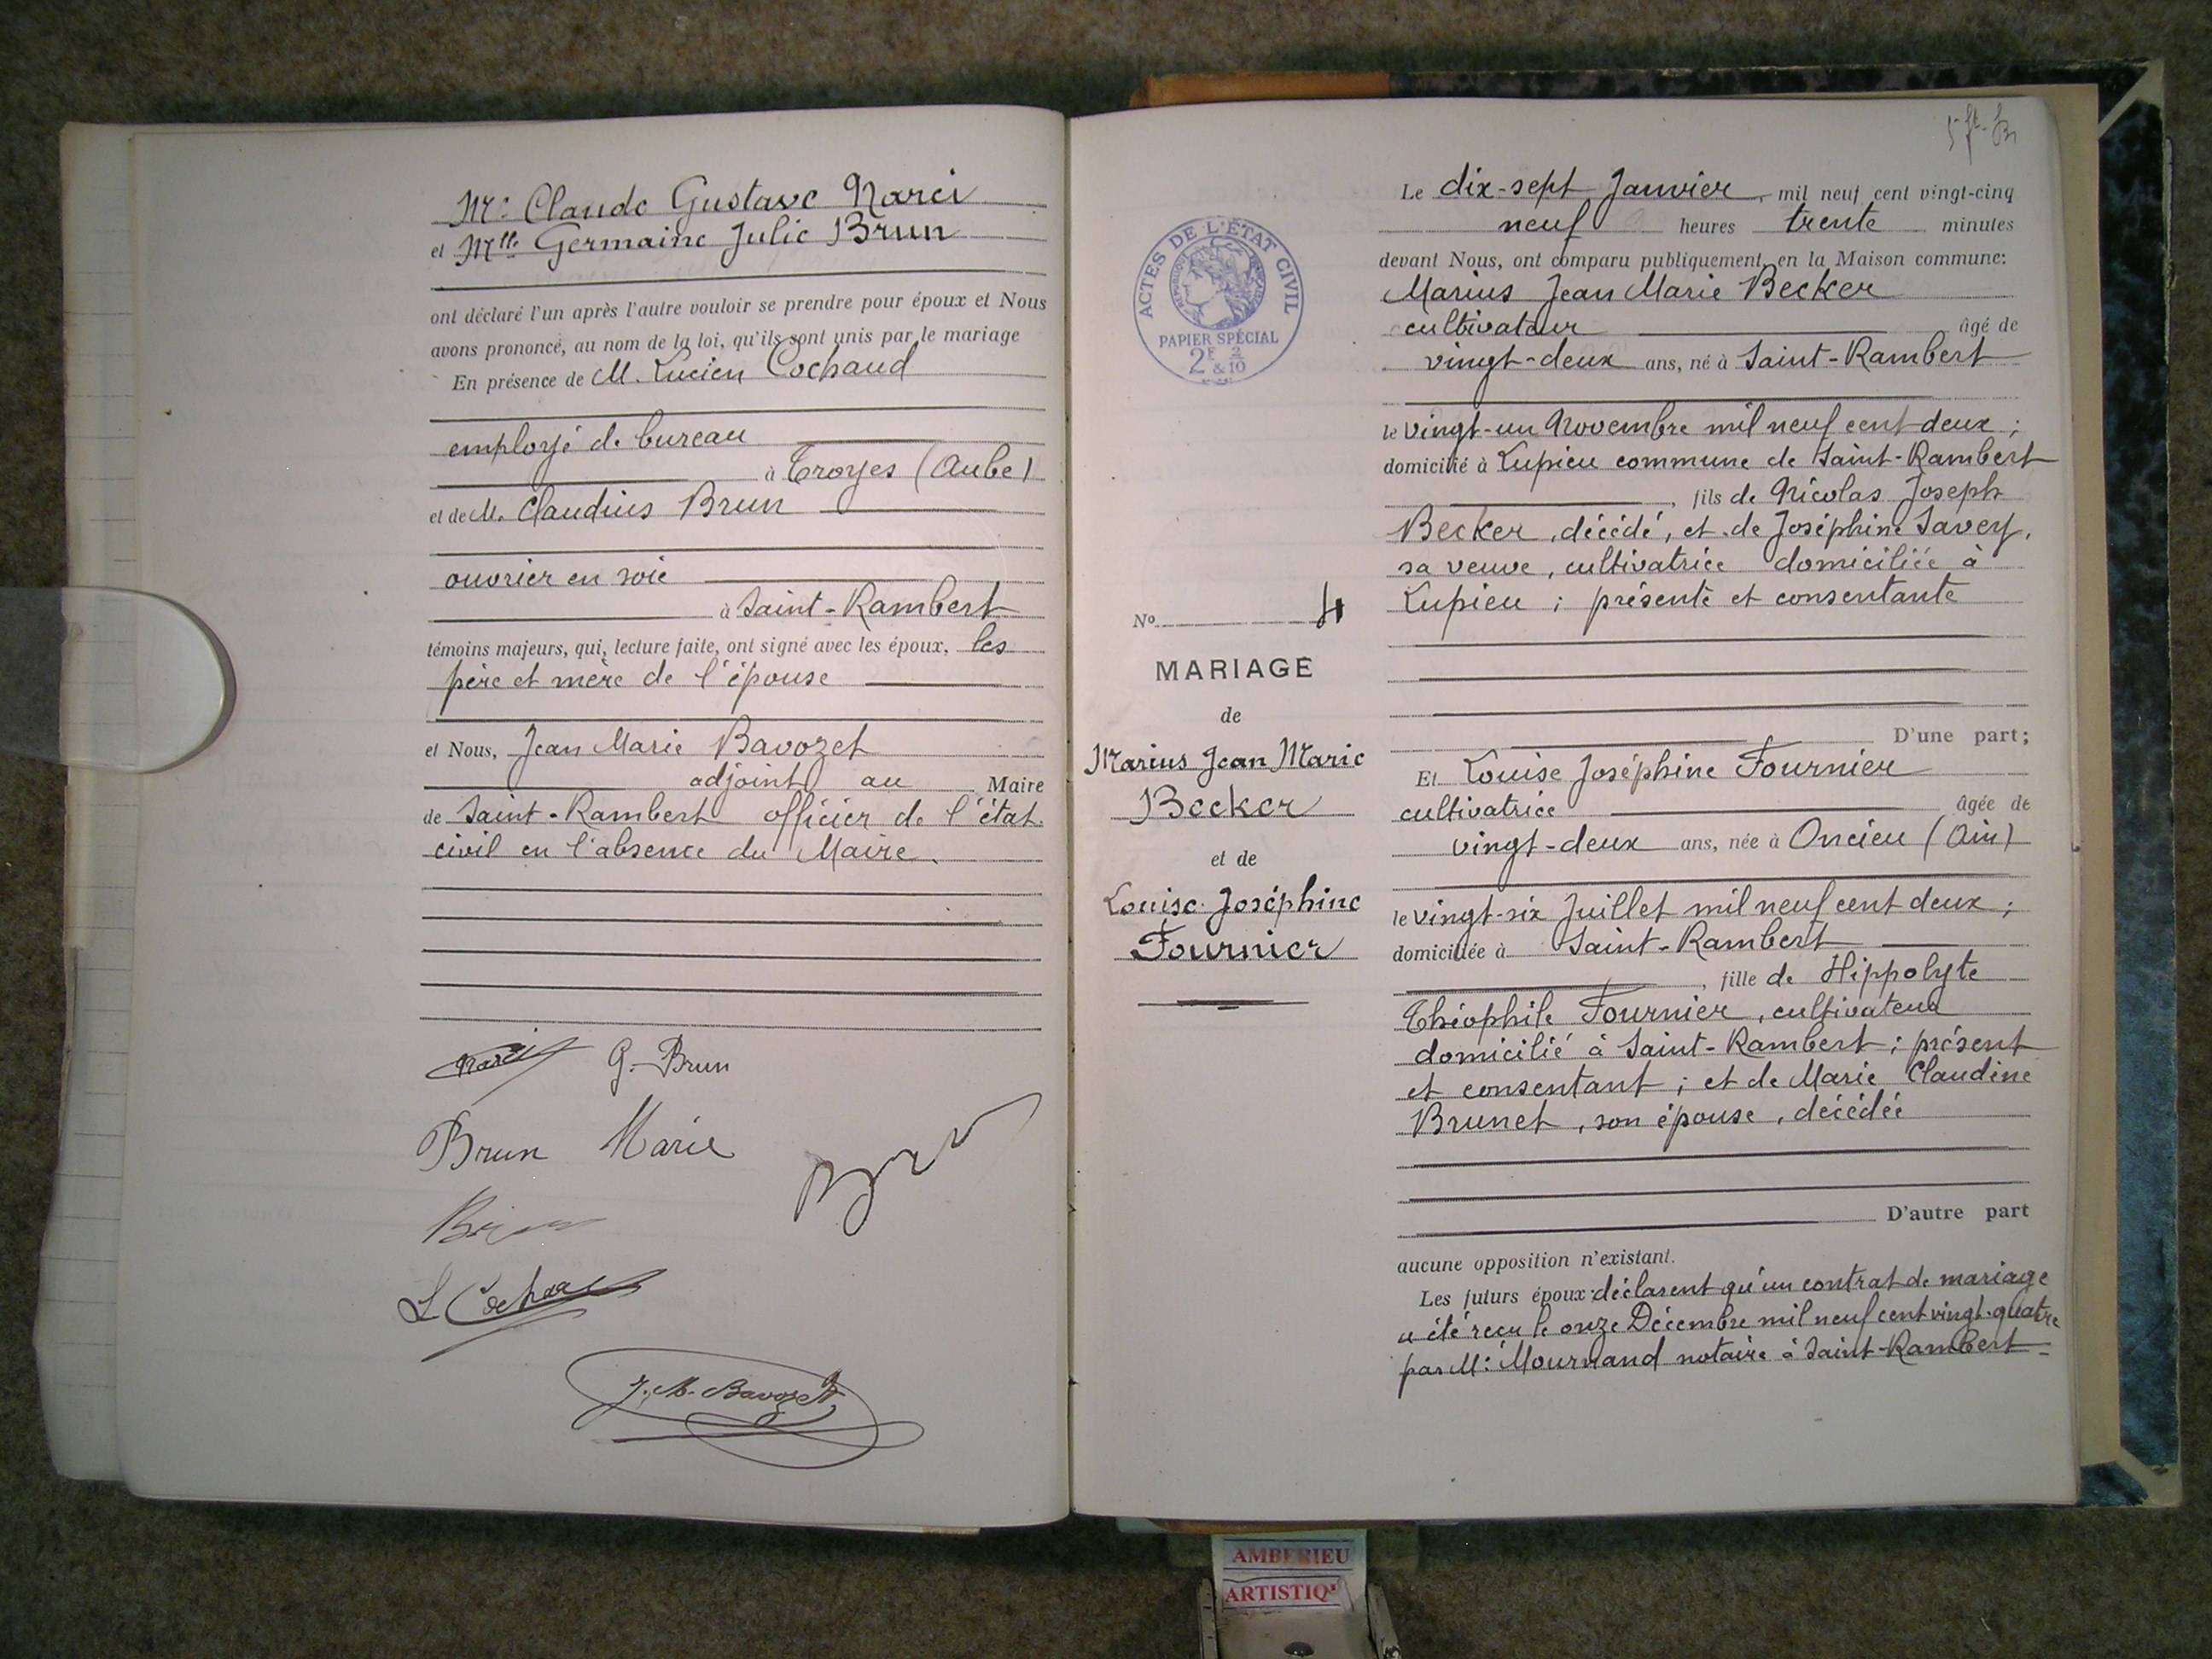 Mr. Claude Gustave Narci
et Mlle Germaine Julie Brun
ont déclaré l'un après l'autre vouloir se prendre pour époux et Nous
avons prononcé, au nom de la loi, qu'ils sont unis par le mariage
En présence de M. Lucien Cochaud
employé de bureau
à Troyes (Aube)
et de M. Claudius Brun
ouvrier en soie
à Saint-Rambert
témoins majeurs, qui, lecture faite, ont signé avec les époux, les
père et mère de l'épouse
et Nous, Jean Marie Bavozet
adjoint au Maire
de Saint-Rambert officier de l'état
civil en l'absence du Maire.
Narci G. Brun
Brun Marie
Brun
L Cochau
J. M. Bavozet
ACTES DE L'ÉTAT CIVIL
RÉPUBLIQUE FRANÇAISE
PAPIER SPÉCIAL
2F & 2/10
No 4
MARIAGE
de
Marius Jean Marie
Becker
et de
Louise Joséphine
Fournier
Le dix-sept Janvier, mil neuf cent vingt-cinq
neuf heures trente minutes
devant Nous, ont comparu publiquement en la Maison commune:
Marius Jean Marie Becker
cultivateur âgé de
vingt-deux ans, né à Saint-Rambert
le vingt-un Novembre mil neuf cent deux ;
domicilié à Lupieu commune de Saint-Rambert
, fils de Nicolas Joseph
Becker, décédé, et de Joséphine Savey,
sa veuve, cultivatrice domiciliée à
Lupieu ; présente et consentante
D'une part;
Et Louise Joséphine Fournier
cultivatrice âgée de
vingt-deux ans, née à Oncieu (Ain)
le vingt-six Juillet mil neuf cent deux ;
domiciliée à Saint-Rambert
, fille de Hippolyte
Théophile Fournier, cultivateur
domicilié à Saint-Rambert ; présent
et consentant ; et de Marie Claudine
Brunet, son épouse, décédée
D'autre part
aucune opposition n'existant.
Les futurs époux déclarent qu'un contrat de mariage
a été reçu le onze Décembre mil neuf cent vingt-quatre
par Me Mournand notaire à Saint-Rambert
AMBERIEU
ARTISTIQ